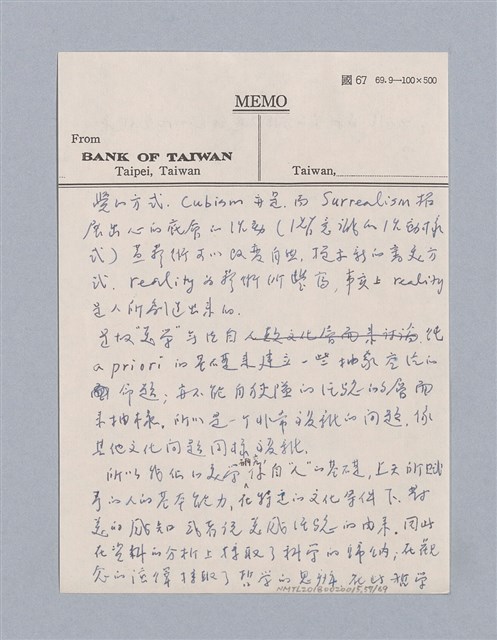 國 67 69.9—100×500
MEMO
From
BANK OF TAIWAN
Taipei, Taiwan
Taiwan,
覺的方式. Cubism 亦是. 而 Surrealism 拓
展出心的底層的活動（潛意識的活動樣
式）. 藝術可以改變自然, 提出新的方
式. reality 為藝術所 , 事實上 reality
是人所創造出來的.
是故"美學"不能自 從
a priori 的基礎來建立一些抽象空泛的
命題; 亦不能自狹隘的活動的層面
來抽樣. 所以是一個非常複雜的問題. 像
其他文化問題同樣複雜.
所以我們的美學 自"人"的基礎, 上天所賦
予的人的基本能力, 在特定的文化條件下, 對
美的感知 或者說美感活動的由來. 因此
在資料的分析上採取了科學的歸納; 在觀
念的演繹採取了哲學的思辨. 哲學
NMTL20180020015,57/69